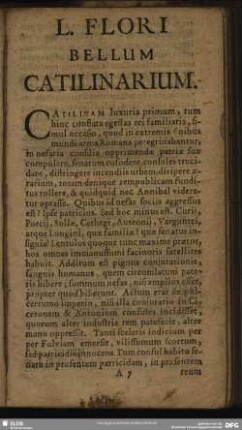 L. FLORI
BELLUM
CATILINARIUM.
CATILINAM luxuria primum, tum
hinc conflata egestas rei familiaris, si-
mul occasio, quod in extremis finibus
mundi arma Romana peregrinabantur,
in nefaria consilia opprimendæ patriæ suæ
compulere. senatum confodere, consules truci-
dare, distringere incendiis urbem, diripere æ-
rarium, totam denique rempublicam fundi-
tus tollere, & quidquid nec Annibal videre-
tur optasse. Quibus id nefas sociis aggressus
est? Ipse patricius. Sed hoc minus est. Curii,
Porcii, Sullæ, Cethegi, Autronii, Vargunteii,
atque Longini, quæ familiæ? quæ senatus in-
signia? Lentulus quoque tunc maxime prætor,
hos omnes immanissimi facinoris satellites
habuit. Additum est pignus conjurationis,
sanguis humanus, quem circumlatum pate-
ris bibere; summum nefas, nisi amplius esset,
propter quod biberunt. Actum erat de pul-
cerrimo imperio, nisi illa conjuratio in Ci-
ceronem & Antonium consules incidisset,
quorum alter industria rem patefecit, alter
manu oppressit. Tanti sceleris indicium per
per Fulviam emersit, vilissimum scortum,
sed parricidii innocens. Tum consul habito se-
natu in præsentem parricidam, in præsentem
A 7
reum
SLUB
DFG